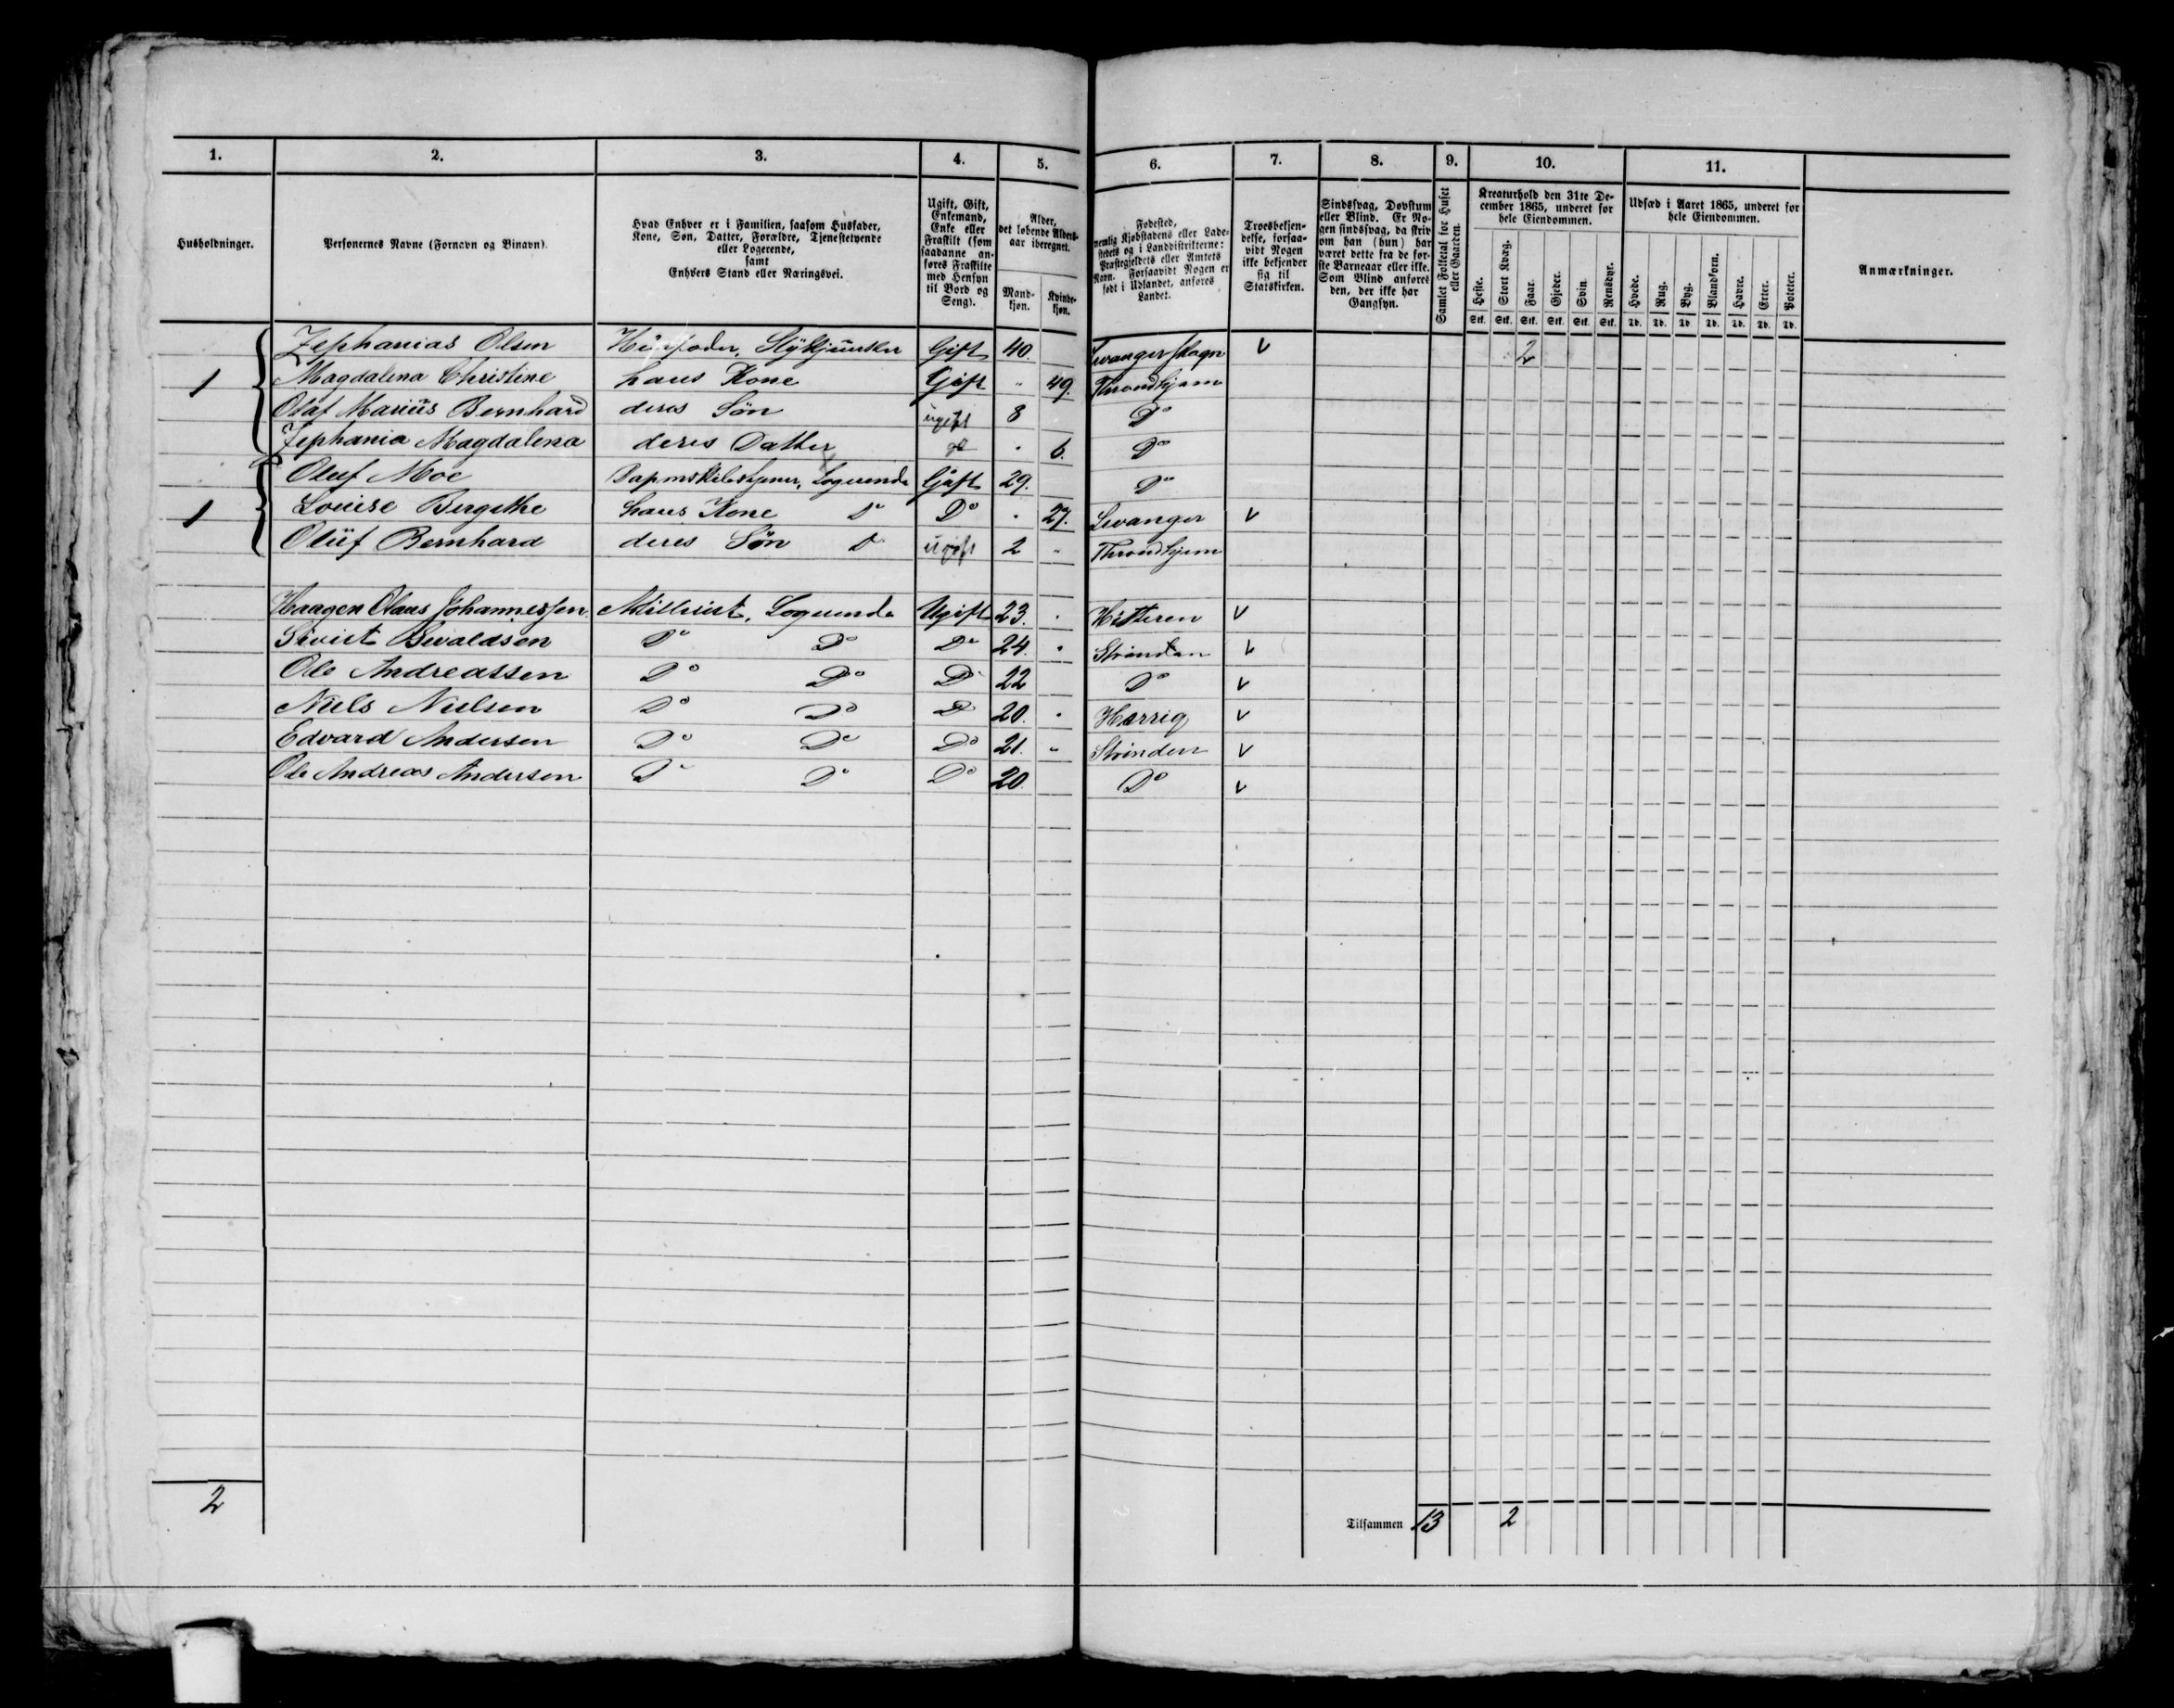 1. 2. 3. 4. 5. 6. 7. 8. 9. 10. 11.
Husholdninger.
Personernes Navne (Fornavn og Binavn).
Hvad Enhver er i Familien, saasom Husfader,
Kone, Søn, Datter, Forældre, Tjenestetyende
eller Logerende,
samt
Enhvers Stand eller Næringsvei.
Ugift, Gift,
Enkemand,
Enke eller
Fraskilt (som
saadanne an-
føres Fraskilte
med Hensyn
til Bord og
Seng).
Alder,
det løbende Alders-
aar iberegnet.
Mand-
kjøn.
Kvinde-
kjøn.
Fødested,
nemlig Kjøbstadens eller Lade-
stedets og i Landdistrikterne:
Præstegjeldets eller Amtets
Navn. Forsaavidt Nogen er
født i Udlandet, anføres
Landet.
Troesbekjen-
delse, forsaa-
vidt Nogen
ikke bekjender
sig til
Statskirken.
Sindssvag, Døvstum
eller Blind. Er No-
gen sindssvag, da skriv
om han (hun) har
været dette fra de før-
ste Barneaar eller ikke.
Som Blind anføres
den, der ikke har
Gangsyn.
Samlet Folketal for Huset
eller Gaarden.
Kreaturhold den 31te De-
cember 1865, underet for
hele Eiendommen.
Heste. Stort Kvæg. Faar. Gjeder. Svin. Rensdyr.
Stk. Stk. Stk. Stk. Stk. Stk.
Udsæd i Aaret 1865, underet for
hele Eiendommen.
Hvede. Rug. Byg. Blandkorn. Havre. Erter. Poteter.
Td. Td. Td. Td. Td. Td. Td.
Anmærkninger.
Zephanias Olsen Huusfader, Gift 40. v 2
1 Magdalena Christine hans Kone Gift " 49. Throndhjem
Olaf Marius Bernhard deres Søn ugift 8 Do
Zephania Magdalena deres Datter " 6. Do
Oluf Moe Logerende Gift 29. Do
1 Louise Bergithe hans Kone Do Do " 27. Levanger v
Oluf Bernhard deres Søn Do ugift 2 " Throndhjem
Haagen Olaus Johannessen Logerende Ugift 23. " Hitteren v
Sivert Sivaldsen Do Do Do 24. " Strinden v
Ole Andreassen Do Do Do 22 Do v
Niels Nielsen Do Do Do 20. " v
Edvard Andersen Do Do Do 21. " Strinden v
Ole Andreas Andersen Do Do Do 20. Do v
2 Tilsammen 13 2